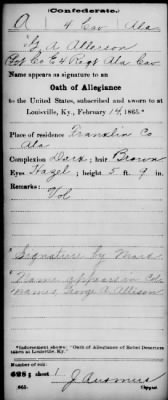 Confederate.
A 4 Cav Ala
G. A. Allason
Pvt Co E 4 Regt Ala Cav
Name appears as signature to an
Oath of Allegiance
to the United States, subscribed and sworn to at
Louisville, Ky., February 14, 1865.*
Place of residence Franklin Co
Ala
Complexion Dark; hair Brown
Eyes Hazel; height 5 ft. 9 in.
Remarks:
Vol
"Signature by Mark.
"Name appears in
names George A Allison
*Indorsement shows: "Oath of Allegiance of Rebel Deserters
taken at Louisville, Ky."
Number of roll:
628; sheet 1
J. Ausmus
Copyist.